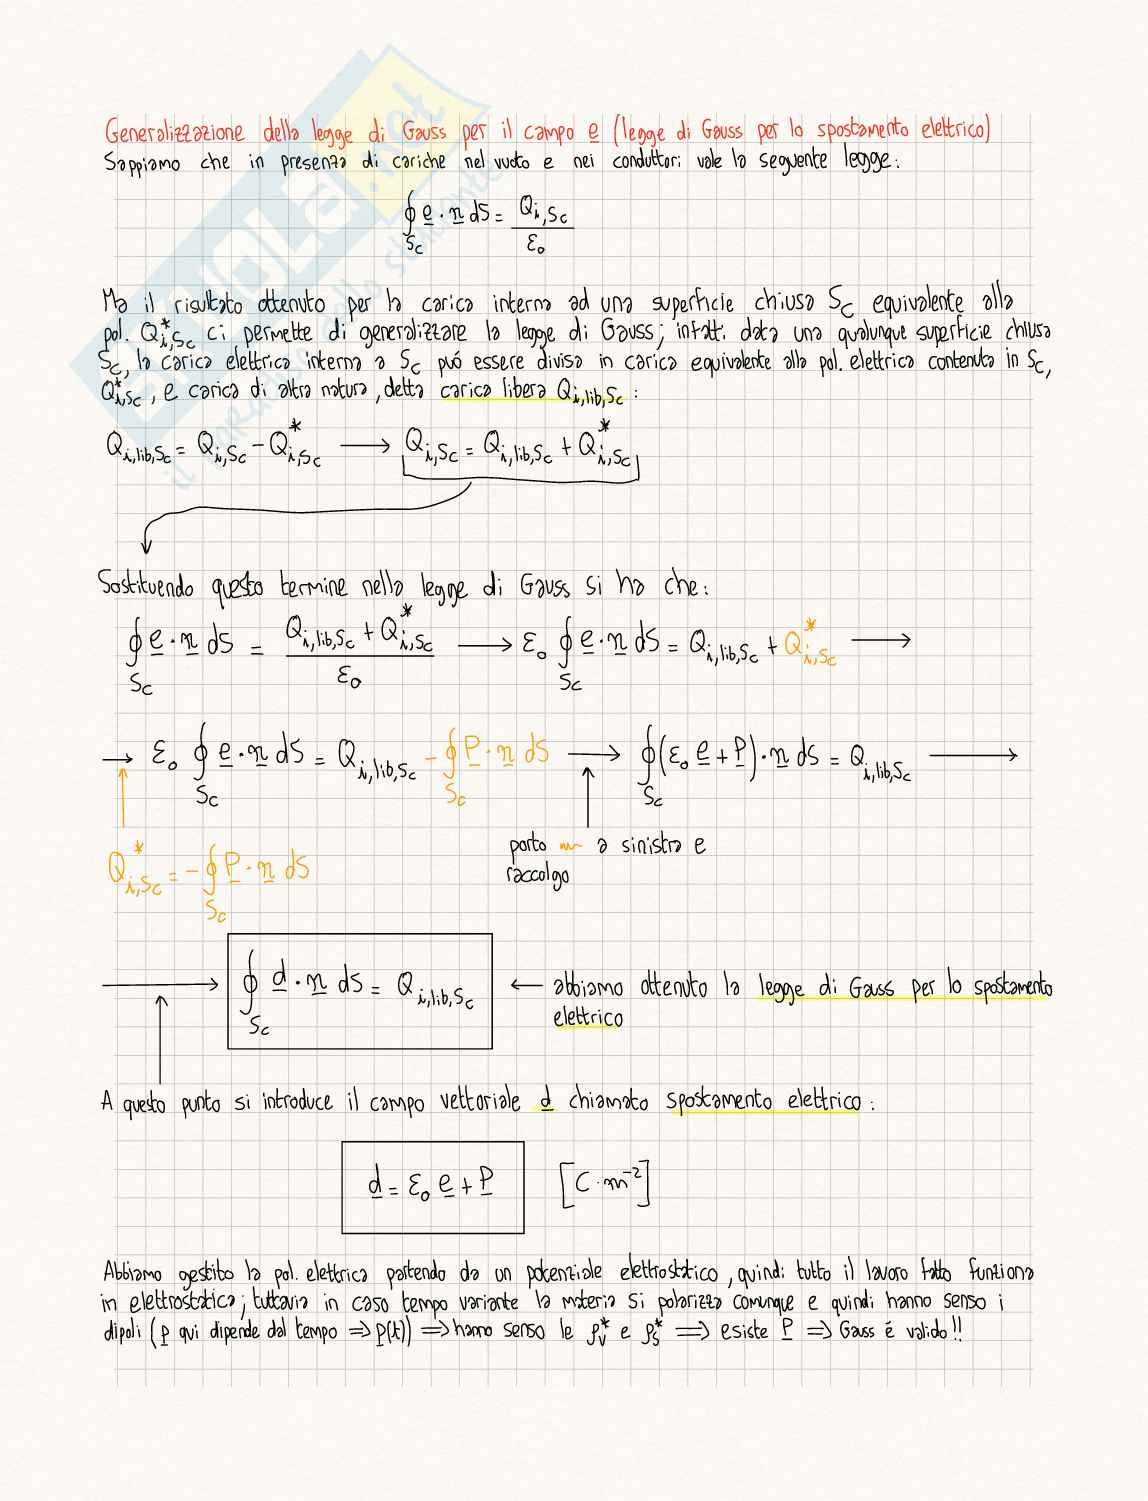 Generalizzazione della legge di Gauss per il campo e (legge di Gauss per lo spostamento elettrico)
Sappiamo che in presenza di cariche nel vuoto e nei conduttori vale la seguente legge:
∮_Sc e · n dS = Q_i,Sc / ε₀
Ma il risultato ottenuto per la carica interna ad una superficie chiusa Sc equivalente alla
pol. Q*_i,Sc ci permette di generalizzare la legge di Gauss; infatti data una qualunque superficie chiusa
Sc, la carica elettrica interna a Sc può essere divisa in carica equivalente alla pol. elettrica contenuta in Sc,
Q*_i,Sc, e carica di altra natura, detta carica libera Q_i,lib,Sc :
Q_i,lib,Sc = Q_i,Sc - Q*_i,Sc → Q_i,Sc = Q_i,lib,Sc + Q*_i,Sc
Sostituendo questo termine nella legge di Gauss si ha che:
∮_Sc e · n dS = (Q_i,lib,Sc + Q*_i,Sc) / ε₀ → ε₀ ∮_Sc e · n dS = Q_i,lib,Sc + Q*_i,Sc →
→ ε₀ ∮_Sc e · n dS = Q_i,lib,Sc - ∮_Sc P · n dS → ∮_Sc (ε₀ e + P) · n dS = Q_i,lib,Sc →
porto a sinistra e
raccolgo
Q*_i,Sc = - ∮_Sc P · n dS
→ ∮_Sc d · n dS = Q_i,lib,Sc ← abbiamo ottenuto la legge di Gauss per lo spostamento
elettrico
A questo punto si introduce il campo vettoriale d chiamato spostamento elettrico :
d = ε₀ e + P [C · m⁻²]
Abbiamo gestito la pol. elettrica partendo da un potenziale elettrostatico, quindi tutto il lavoro fatto funziona
in elettrostatica; tuttavia in caso tempo variante la materia si polarizza comunque e quindi hanno senso i
dipoli (p qui dipende dal tempo ⇒ p(t)) ⇒ hanno senso le ρ*_v e ρ*_s ⇒ esiste P ⇒ Gauss é valido!!
SKUOLA.net
il paradiso dello studente